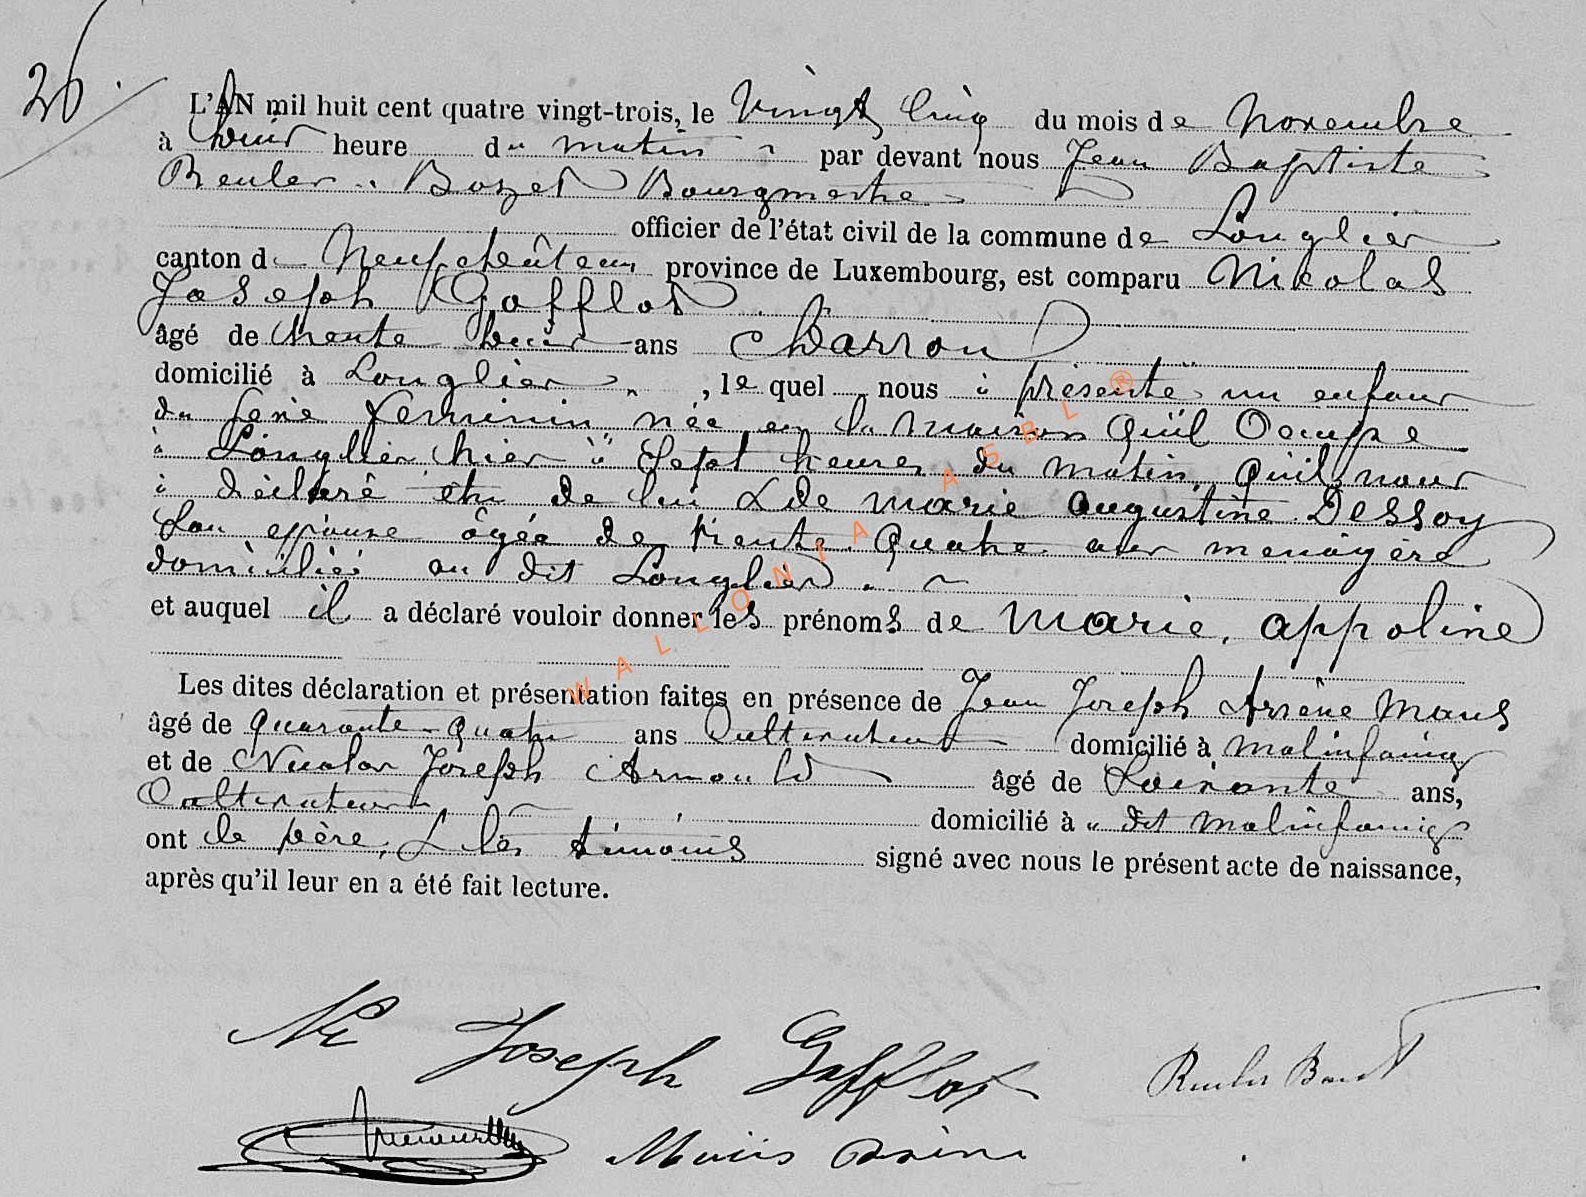 26.
L'AN mil huit cent quatre vingt-trois, le Vingt Cinq du mois de Novembre
à heure du matin par devant nous Jean Baptiste
Reuler Bozet Bourgmestre
officier de l'état civil de la commune de Longlier
canton de Neufchâteau province de Luxembourg, est comparu Nicolas
Joseph Gofflot
âgé de trente ans Charron
domicilié à Longlier, lequel nous à présenté un enfant
du sexe féminin née en la maison qu'il Occupe
à Longlier hier à Sept heures du matin, qu'il nous
à déclaré être de lui & de marie augustine Dessoy
son épouse âgée de trente quatre ans menagère
domiciliée au dit Longlier
et auquel il a déclaré vouloir donner les prénoms de marie, appoline
Les dites déclaration et présentation faites en présence de Jean Joseph Arsène Maus
âgé de quarante-quatre ans Cultivateur domicilié à malinfaing
et de Nicolas Joseph Arnould âgé de Soixante ans,
Cultivateur domicilié à dit malinfaing
ont le père, & les témoins signé avec nous le présent acte de naissance,
après qu'il leur en a été fait lecture.
Joseph Gofflot
WALLONIA ASBL ®